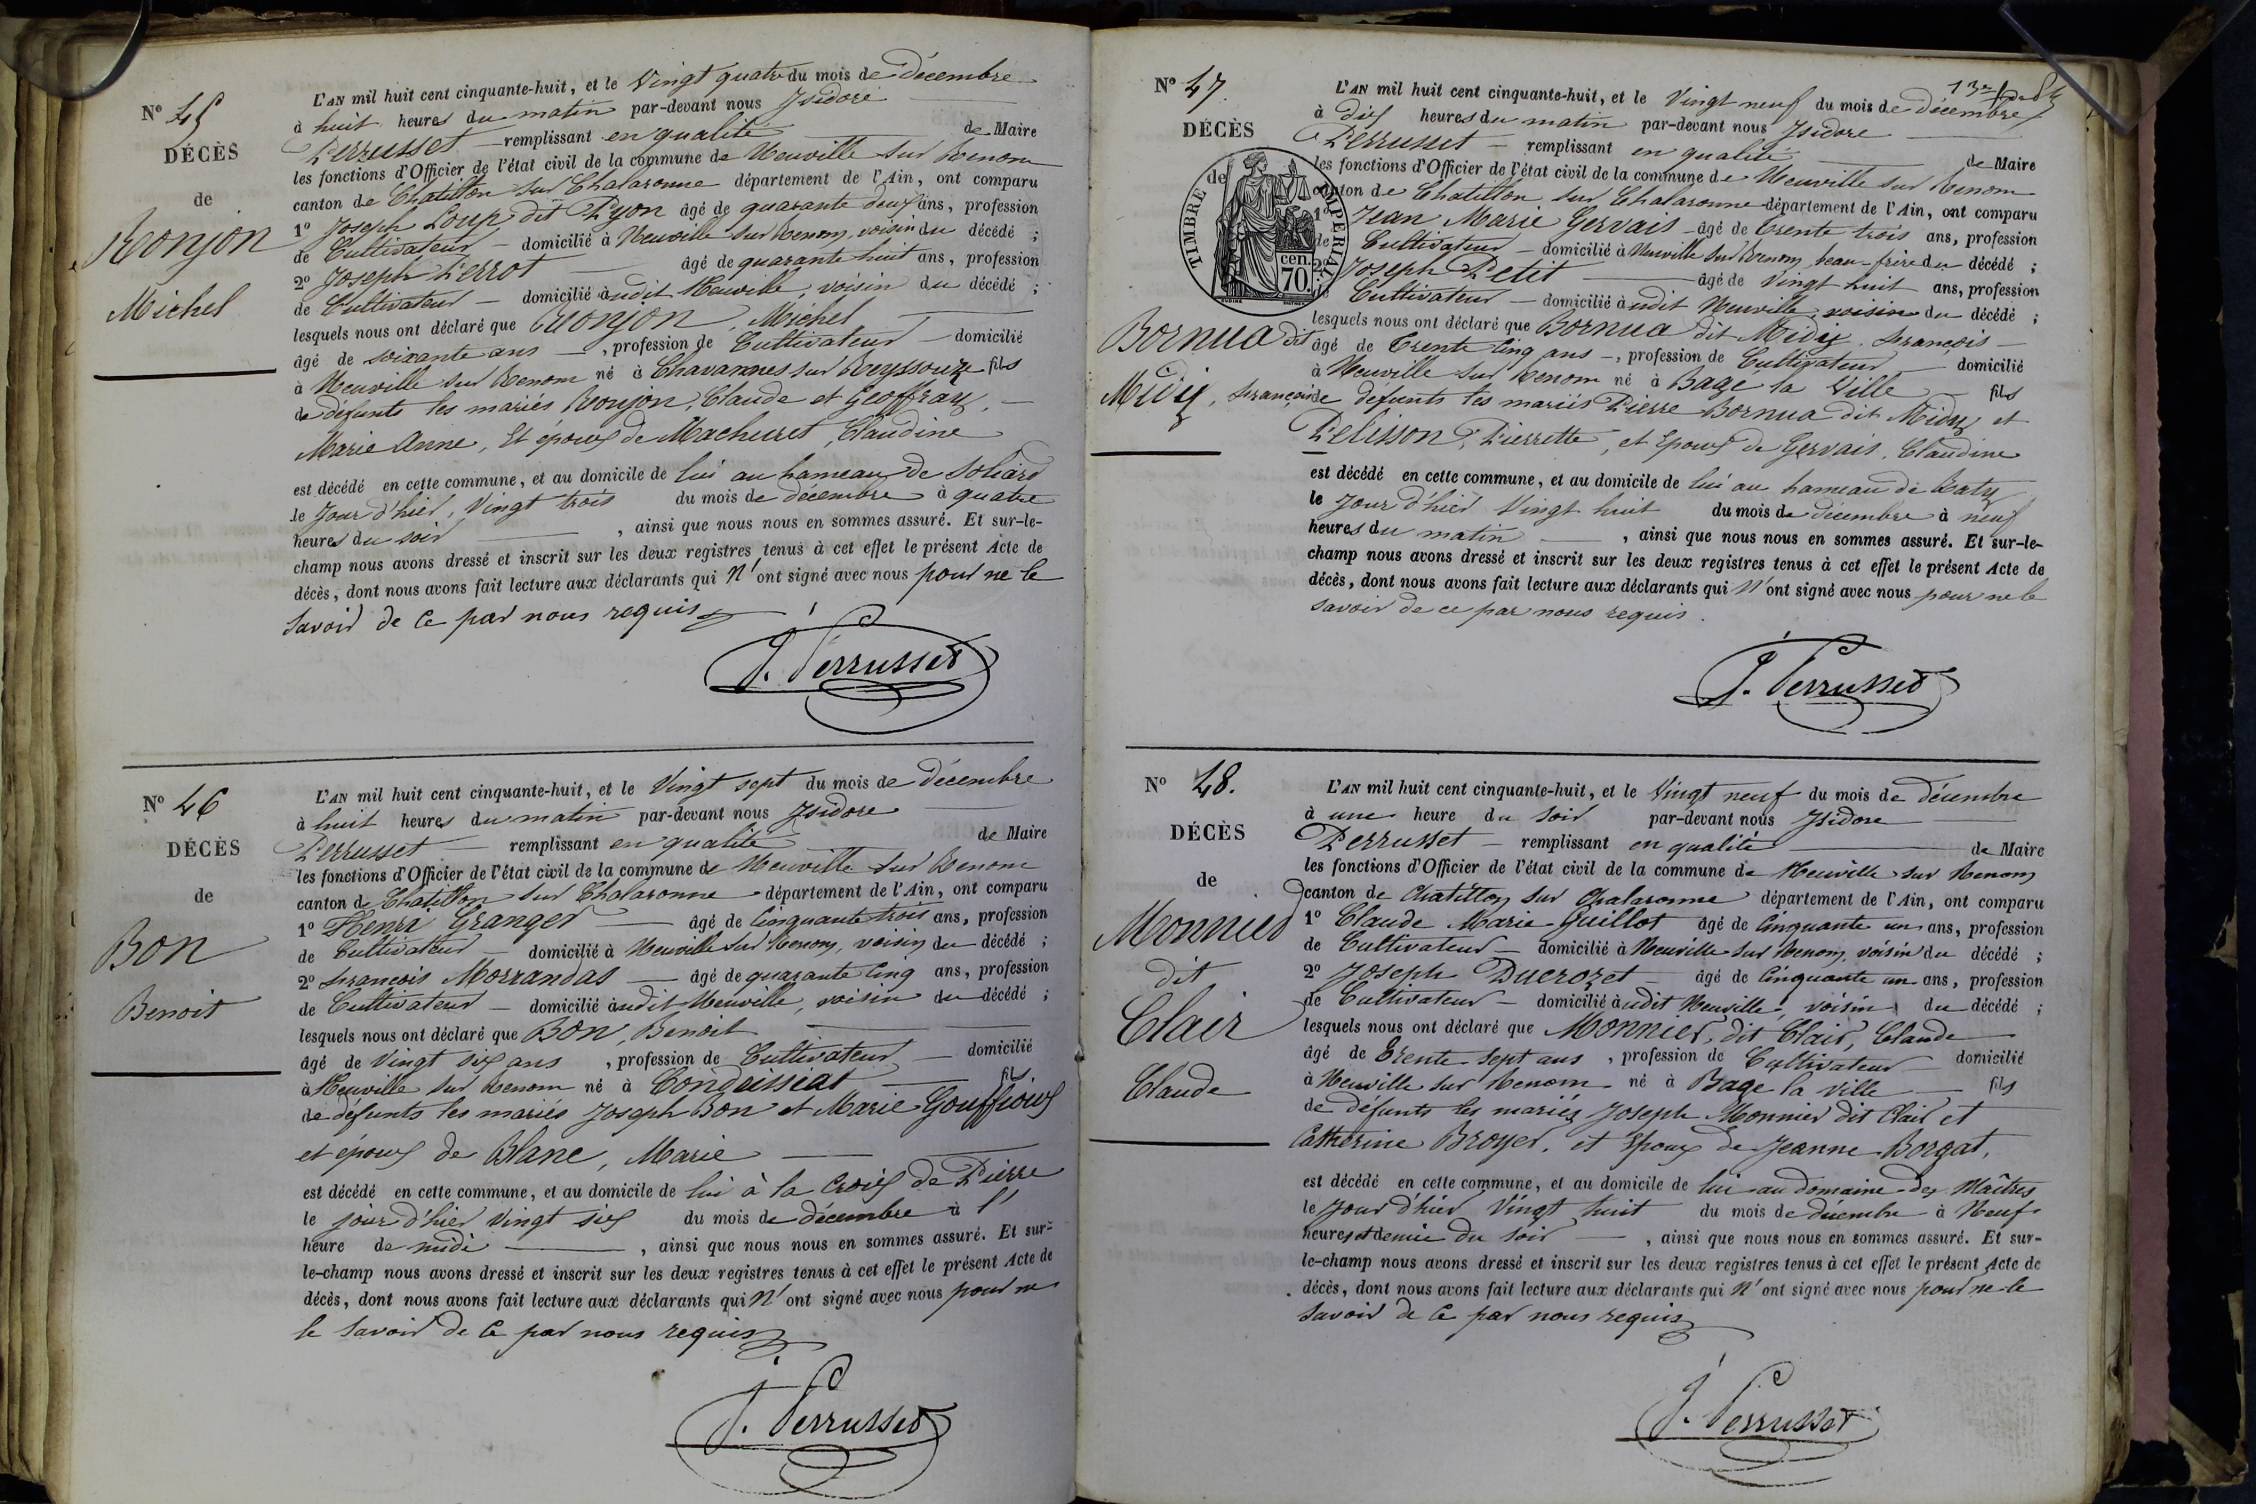 N° 45
DÉCÈS
de
Roonjon
Michel
L'AN mil huit cent cinquante-huit, et le Vingt quatre du mois de décembre
à huit heures du matin par-devant nous Isidore
Perrusset remplissant en qualité de Maire
les fonctions d'Officier de l'état civil de la commune de Neuville sur Renom
canton de Chatillon sur Chalaronne département de l'Ain, ont comparu
1° Joseph Loup dit Pyon âgé de quarante deux ans, profession
de Cultivateur domicilié à Neuville sur Renom, voisin du décédé ;
2° Joseph Perrot âgé de quarante huit ans, profession
de Cultivateur domicilié audit Neuville, voisin du décédé ;
lesquels nous ont déclaré que Roonjon, Michel
âgé de soixante ans, profession de Cultivateur domicilié
à Neuville sur Renom né à Chavannes sur Reyssouze fils
de défunts les mariés Roonjon, Claude et Geoffray,
Marie Anne, Et époux de Machuret, Claudine
est décédé en cette commune, et au domicile de lui au hameau de Soliard
le jour d'hier, Vingt trois du mois de décembre à quatre
heures du soir, ainsi que nous nous en sommes assuré. Et sur-le-
champ nous avons dressé et inscrit sur les deux registres tenus à cet effet le présent Acte de
décès, dont nous avons fait lecture aux déclarants qui N'ont signé avec nous pour ne le
Savoir de Ce par nous requis
J. Perrusset
N° 46
DÉCÈS
de
Bon
Benoit
L'AN mil huit cent cinquante-huit, et le Vingt sept du mois de décembre
à huit heures du matin par-devant nous Isidore
Perrusset remplissant en qualité de Maire
les fonctions d'Officier de l'état civil de la commune de Neuville sur Renom
canton de Chatillon sur Chalaronne département de l'Ain, ont comparu
1° Henri Granger âgé de Cinquante trois ans, profession
de Cultivateur domicilié à Neuville sur Renom, voisin du décédé ;
2° François Morrandas âgé de quarante Cinq ans, profession
de Cultivateur domicilié audit Neuville, voisin du décédé ;
lesquels nous ont déclaré que Bon, Benoit
âgé de Vingt six ans, profession de Cultivateur domicilié
à Neuville sur Renom né à Condeissiat fils
de défunts les mariés Joseph Bon et Marie Gouffioux
et époux de Blanc, Marie
est décédé en cette commune, et au domicile de lui à la Croix de Pierre
le jour d'hier Vingt six du mois de décembre à l'
heure de midi, ainsi que nous nous en sommes assuré. Et sur-
le-champ nous avons dressé et inscrit sur les deux registres tenus à cet effet le présent Acte de
décès, dont nous avons fait lecture aux déclarants qui N'ont signé avec nous pour ne
le Savoir de Ce par nous requis
J. Perrusset
N° 47
DÉCÈS
de
TIMBRE IMPERIAL
70. cen.
Bornua dit
Midy, François
L'AN mil huit cent cinquante-huit, et le Vingt neuf du mois de décembre
à dix heures du matin par-devant nous Isidore
Perrusset remplissant en qualité de Maire
les fonctions d'Officier de l'état civil de la commune de Neuville sur Renom
canton de Chatillon sur Chalaronne département de l'Ain, ont comparu
1° Jean Marie Gervais âgé de Trente trois ans, profession
de Cultivateur domicilié à Neuville sur Renom, beau-frère du décédé ;
2° Joseph Petit âgé de Vingt huit ans, profession
de Cultivateur domicilié audit Neuville, voisin du décédé ;
lesquels nous ont déclaré que Bornua dit Midy, François
âgé de Trente Cinq ans, profession de Cultivateur domicilié
à Neuville sur Renom né à Bage la Ville fils
de défunts les mariés Pierre Bornua dit Midy et
Pelisson, Pierrette, et Epoux de Gervais, Claudine
est décédé en cette commune, et au domicile de lui au hameau de Raty
le Jour d'hier Vingt huit du mois de décembre à neuf
heures du matin, ainsi que nous nous en sommes assuré. Et sur-le-
champ nous avons dressé et inscrit sur les deux registres tenus à cet effet le présent Acte de
décès, dont nous avons fait lecture aux déclarants qui N'ont signé avec nous pour ne le
Savoir de ce par nous requis.
J. Perrusset
N° 48.
DÉCÈS
de
Monnier
dit
Clair
Claude
L'AN mil huit cent cinquante-huit, et le Vingt neuf du mois de décembre
à une heure du Soir par-devant nous Isidore
Perrusset remplissant en qualité de Maire
les fonctions d'Officier de l'état civil de la commune de Neuville sur Renom
canton de Chatillon sur Chalaronne département de l'Ain, ont comparu
1° Claude Marie Guillot âgé de Cinquante un ans, profession
de Cultivateur domicilié à Neuville sur Renom, voisin du décédé ;
2° Joseph Ducrozet âgé de Cinquante un ans, profession
de Cultivateur domicilié audit Neuville, voisin du décédé ;
lesquels nous ont déclaré que Monnier, dit Clair, Claude
âgé de Trente sept ans, profession de Cultivateur domicilié
à Neuville sur Renom né à Bage la Ville fils
de défunts les mariés Joseph Monnier dit Clair et
Catherine Broyer, et Epoux de Jeanne Borgat,
est décédé en cette commune, et au domicile de lui au domaine des Maîtres
le Jour d'hier Vingt huit du mois de décembre à Neuf
heures et demie du Soir, ainsi que nous nous en sommes assuré. Et sur-
le-champ nous avons dressé et inscrit sur les deux registres tenus à cet effet le présent Acte de
décès, dont nous avons fait lecture aux déclarants qui N'ont signé avec nous pour ne le
Savoir de Ce par nous requis
J. Perrusset